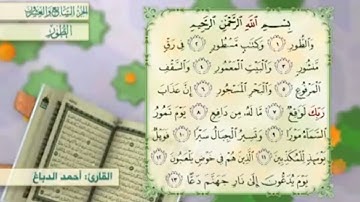 الجزء السابع والعشرون
الطور
بِسْمِ اللَّهِ الرَّحْمَٰنِ الرَّحِيمِ
وَالطُّورِ ١ وَكِتَابٍ مَّسْطُورٍ ٢ فِي رَقٍّ
مَّنشُورٍ ٣ وَالْبَيْتِ الْمَعْمُورِ ٤ وَالسَّقْفِ
الْمَرْفُوعِ ٥ وَالْبَحْرِ الْمَسْجُورِ ٦ إِنَّ عَذَابَ
رَبِّكَ لَوَاقِعٌ ٧ مَّا لَهُ مِن دَافِعٍ ٨ يَوْمَ تَمُورُ
السَّمَاءُ مَوْرًا ٩ وَتَسِيرُ الْجِبَالُ سَيْرًا ١٠ فَوَيْلٌ
يَوْمَئِذٍ لِّلْمُكَذِّبِينَ ١١ الَّذِينَ هُمْ فِي خَوْضٍ يَلْعَبُونَ ١٢
يَوْمَ يُدَعُّونَ إِلَىٰ نَارِ جَهَنَّمَ دَعًّا ١٣
القارئ: أحمد الدباغ